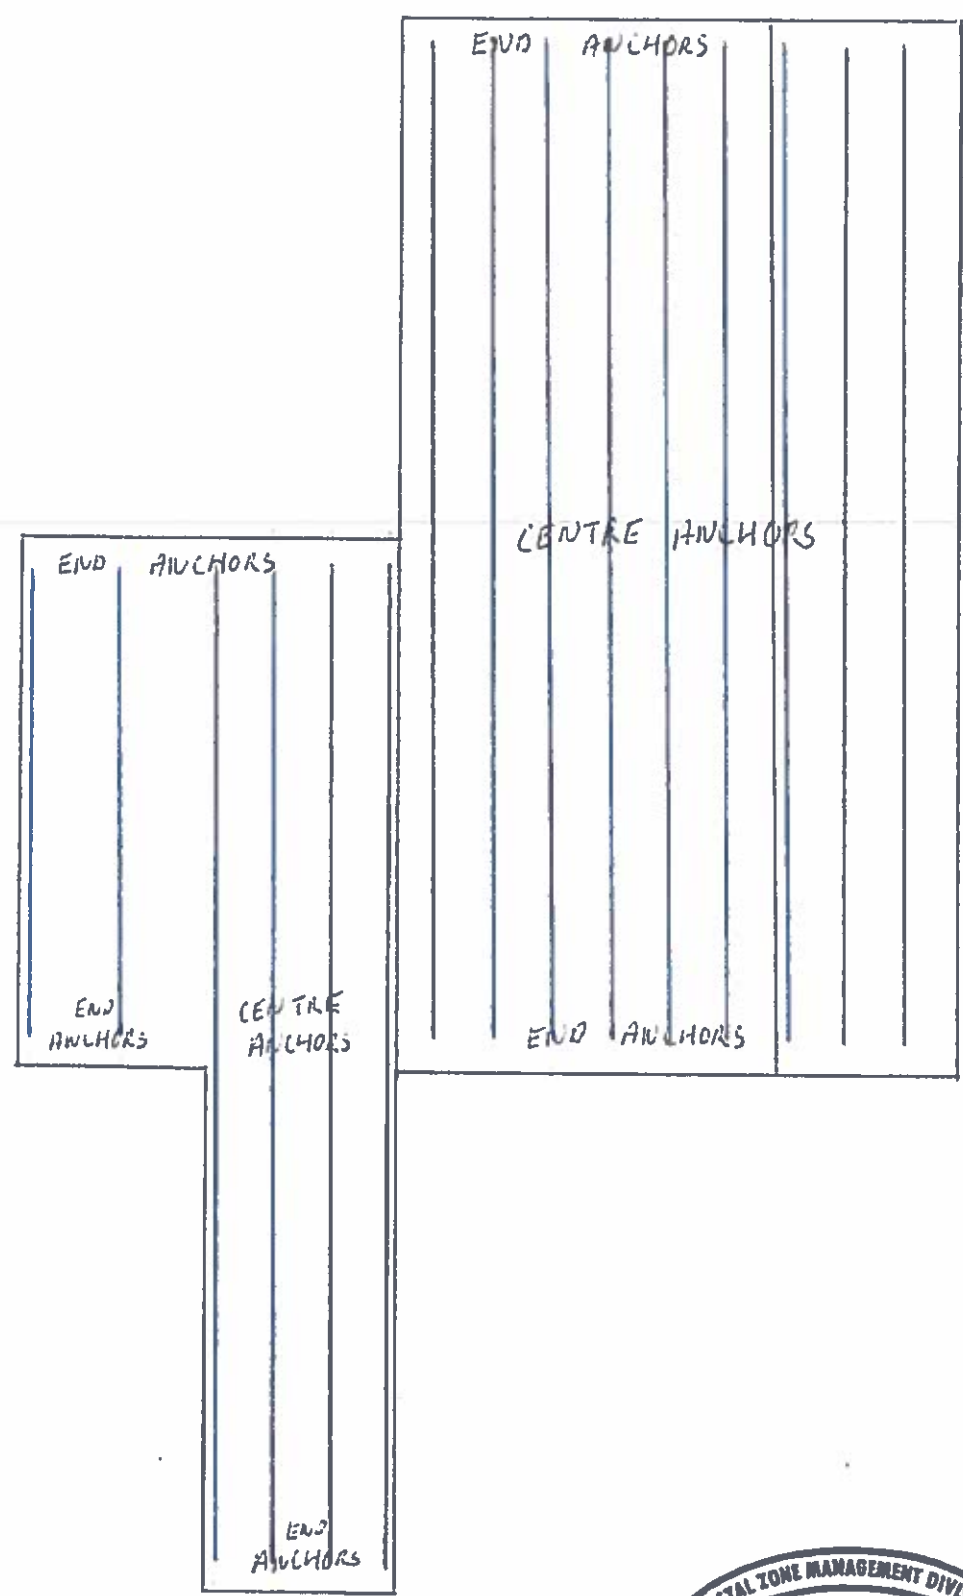 END ANCHORS
CENTRE ANCHORS
END ANCHORS
END ANCHORS
END
ANCHORS
CENTRE
ANCHORS
END
ANCHORS
ZONE MANAGEMENT